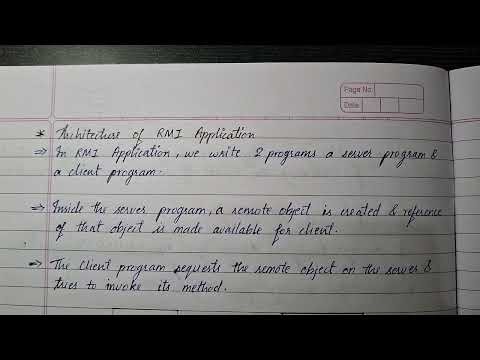 Page No.
Date
* Architecture of RMI Application
⇒ In RMI Application, we write 2 programs a server program &
a client program.
⇒ Inside the server program, a remote object is created & reference
of that object is made available for client.
⇒ The client program requests the remote object on the server &
tries to invoke its method.